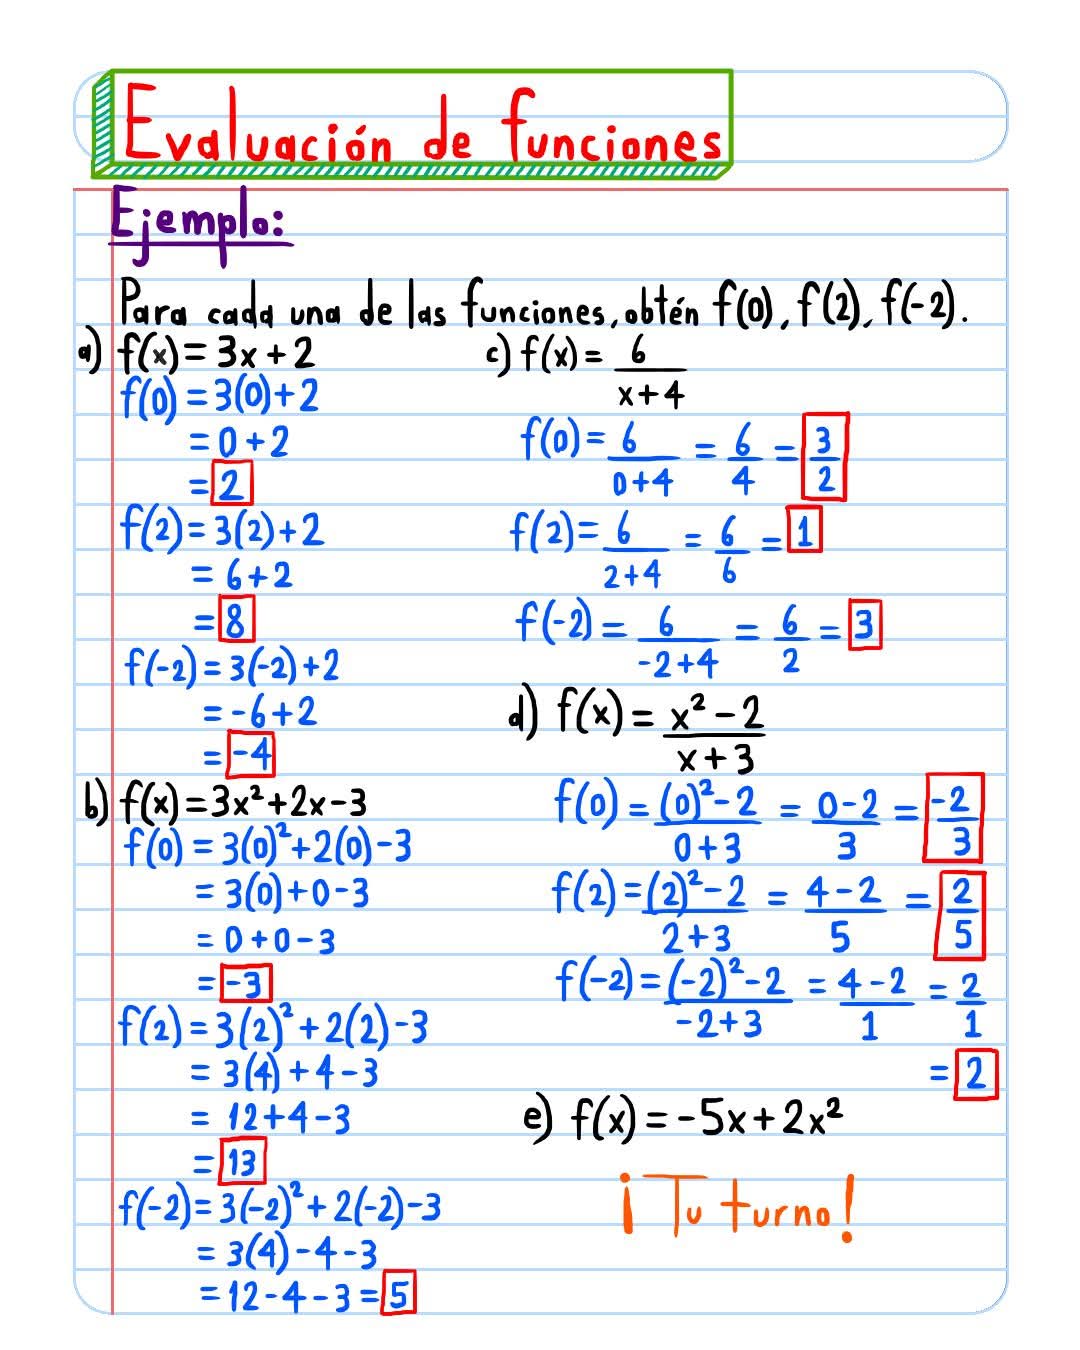 Evaluación de funciones
Ejemplo:
Para cada una de las funciones, obtén f(0), f(2), f(-2).
a) f(x) = 3x + 2
f(0) = 3(0) + 2
= 0 + 2
= 2
f(2) = 3(2) + 2
= 6 + 2
= 8
f(-2) = 3(-2) + 2
= -6 + 2
= -4
b) f(x) = 3x² + 2x - 3
f(0) = 3(0)² + 2(0) - 3
= 3(0) + 0 - 3
= 0 + 0 - 3
= -3
f(2) = 3(2)² + 2(2) - 3
= 3(4) + 4 - 3
= 12 + 4 - 3
= 13
f(-2) = 3(-2)² + 2(-2) - 3
= 3(4) - 4 - 3
= 12 - 4 - 3 = 5
c) f(x) = 6/(x + 4)
f(0) = 6/(0 + 4) = 6/4 = 3/2
f(2) = 6/(2 + 4) = 6/6 = 1
f(-2) = 6/(-2 + 4) = 6/2 = 3
d) f(x) = (x² - 2)/(x + 3)
f(0) = ((0)² - 2)/(0 + 3) = (0 - 2)/3 = -2/3
f(2) = ((2)² - 2)/(2 + 3) = (4 - 2)/5 = 2/5
f(-2) = ((-2)² - 2)/(-2 + 3) = (4 - 2)/1 = 2/1
= 2
e) f(x) = -5x + 2x²
¡Tu turno!